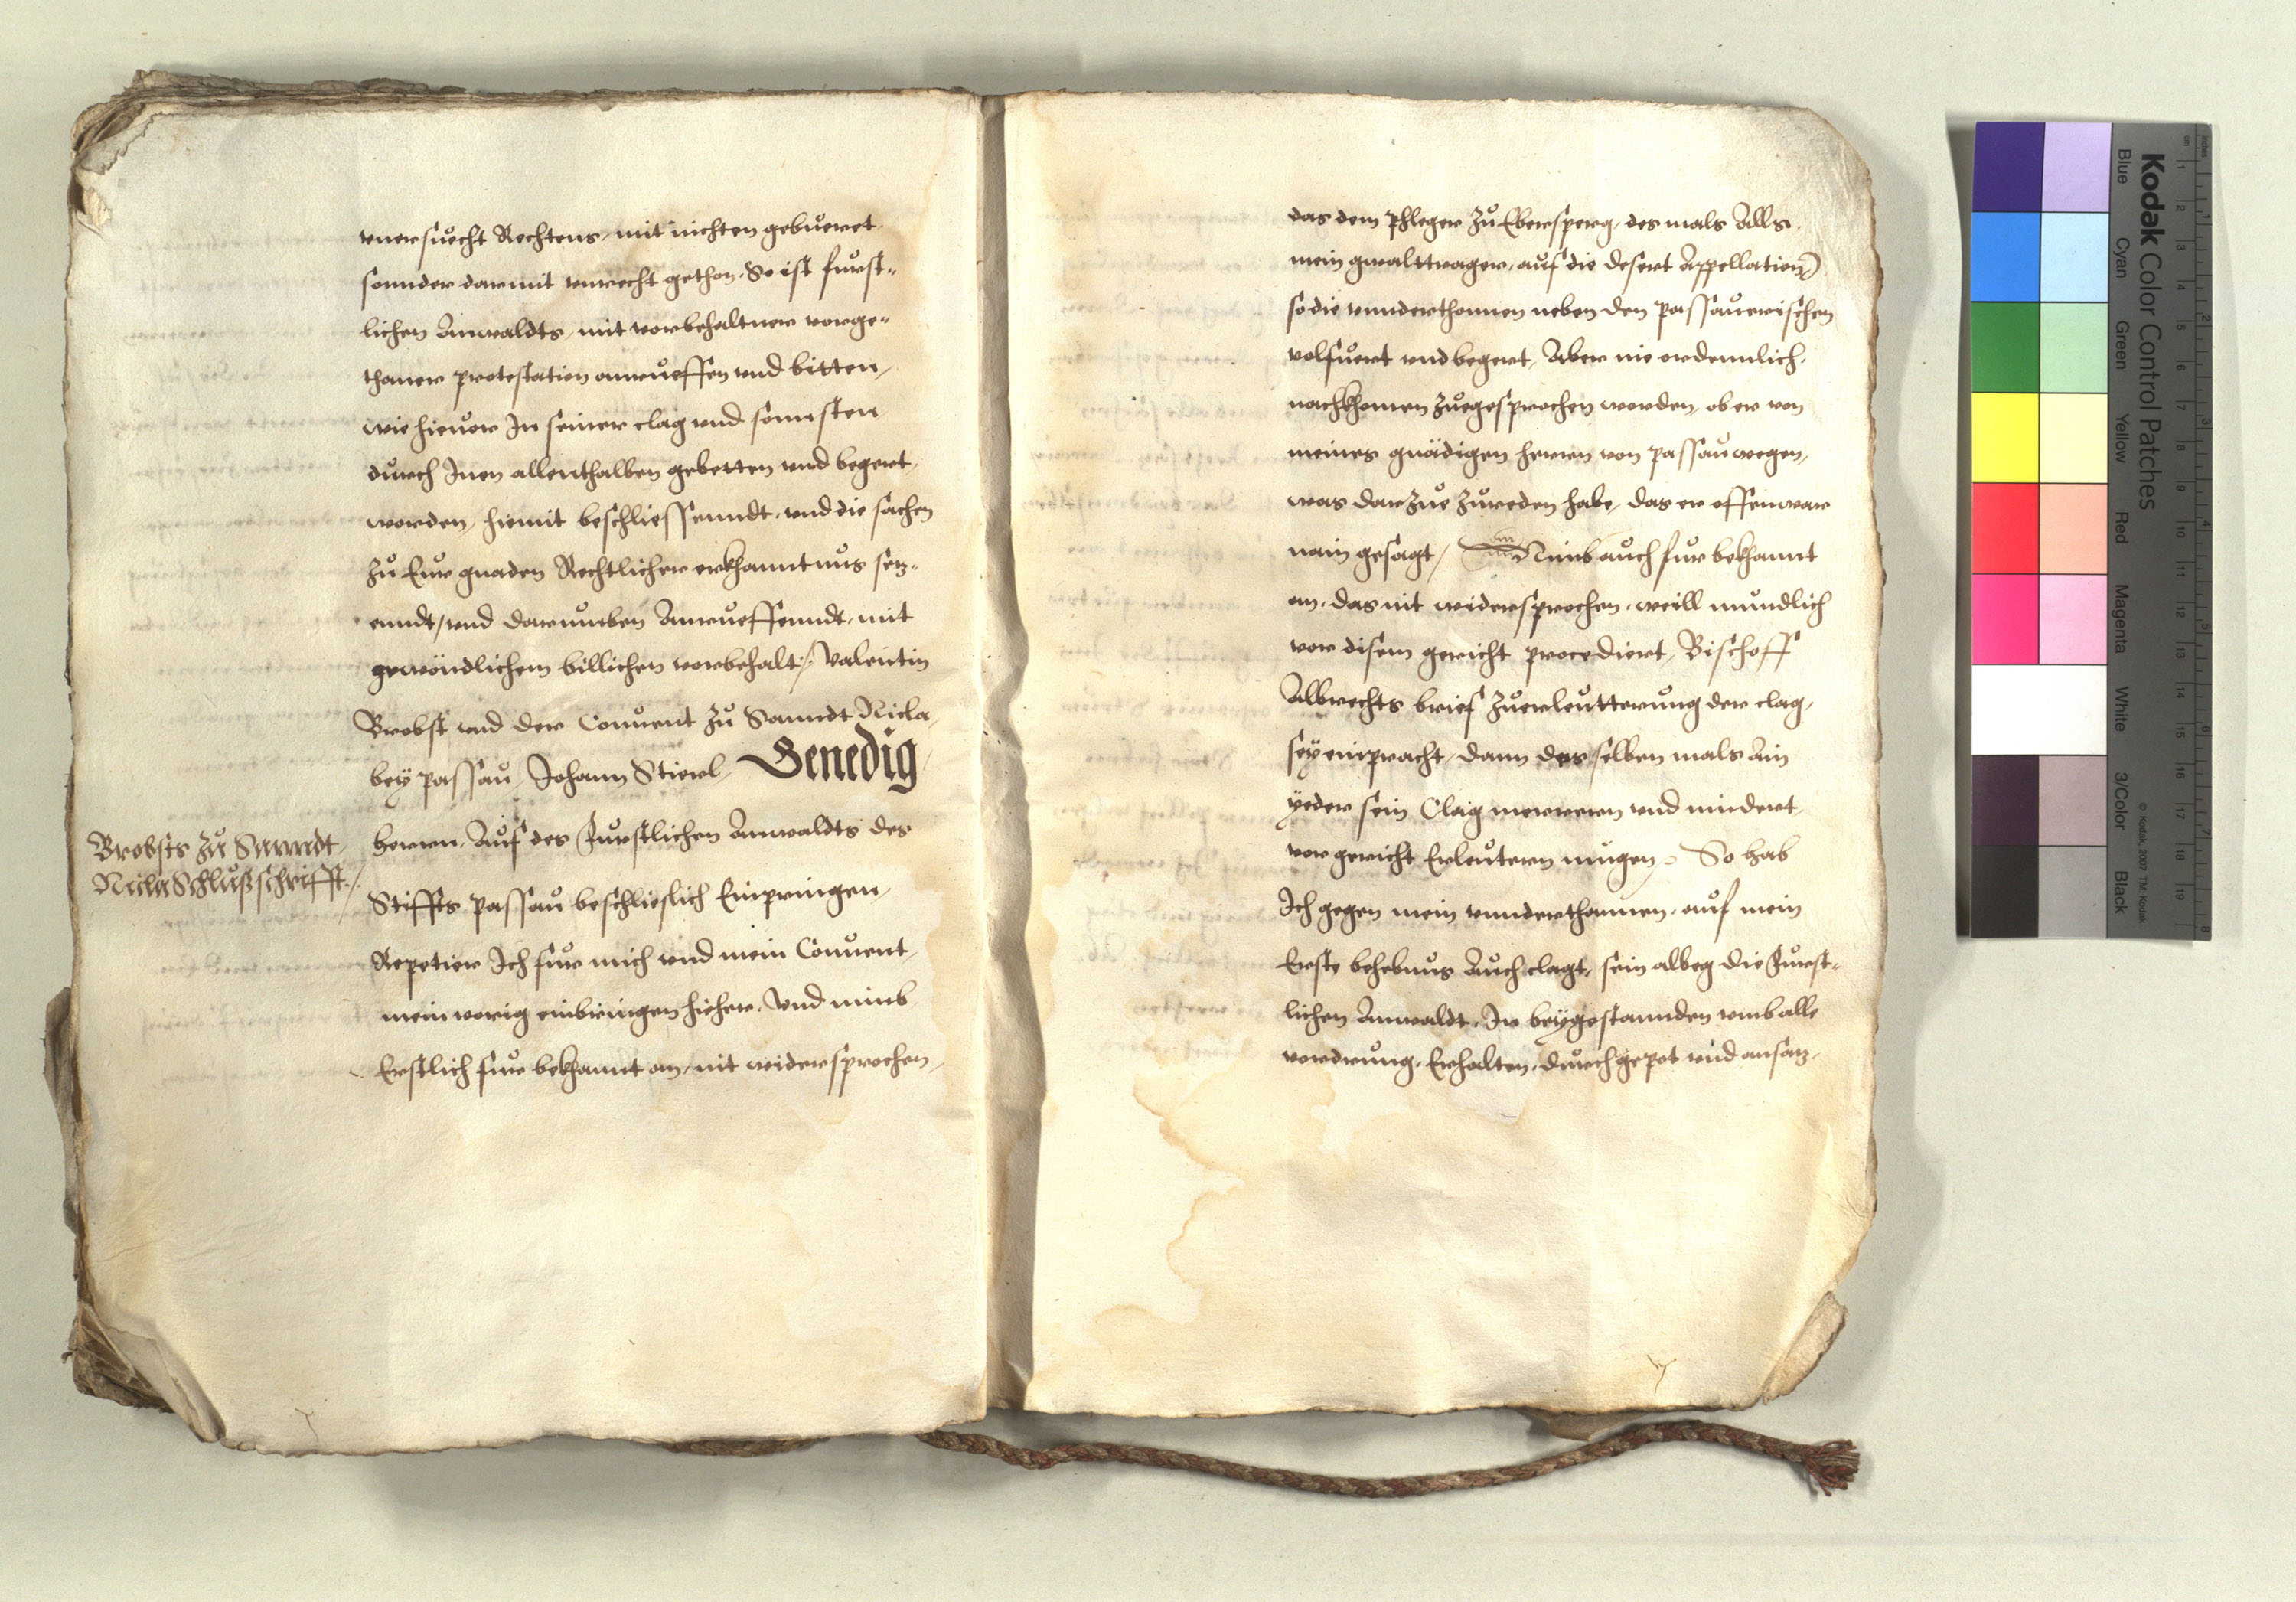 vnersuecht Rechtens, mit nichten gebueret
sonnder darmit vnrecht gethon. So ist furst-
lichen Anwaldts, mit vorbehaltner vorge-
thaner protestation anrueffen vnd bitten,
wie hieuor In seiner clag vnd sonnsten
durch Inen allenthalben gebetten vnd begert,
worden, hiemit beschliessenndt. vnd die sachen
zu Eur gnaden Rechtlicher erkhanntnus setz-
enndt, vnd darumben Anrueffenndt, mit
gewöndlichem billichen vorbehalt ./. Valentin
Brobst vnd der Conuent zu Sanndt Nicla,
bey passau, Johann Stierl, Genedig
Brobsts zu Sanndt
Nicla Schlußschrifft ./.
herren. Auf des Furstlichen Anwaldts des
Stiffts passau beschlieslich Einpringen,
Repetier Ich fur mich vnd mein Conuent,
mein vorig einbringen hieher. Vnd nimb
Erstlich fur bekhannt an, nit widersprochen,
das dem phleger zu Ebersperg, des mals Alls
mein gwalttrager, auf die desert Appellation
so die vnnderthonnen neben den passauerischen
volfuert vnd begert, Aber nie ordennlich
nachkhomen zuegesprochen worden, ob er von
meines gnädigen herren von passau wegen,
was darzue zureden habe, das er offennwar
nain gesagt, Nimb auch fur bekhannt
an, das nit widersprochen, weill mundlich
vor disem gericht procediert, Bischoff
Albrechts brief zuerleutterung der clag,
sey einpracht, dann desselben mals Ain
yeder sein Clag merreren vnd mindert,
vor gericht Erleutern mügen, So hab
Ich gegen mein vnnderthannen, auf mein
Erste behebnus Auch clagt, sein albeg die Furst-
lichen Anwaldt, Ir beygestannden vmb alle
vordrung, Erhalten, durch gepot vnd ansatz,
Kodak Color Control Patches
Blue Cyan Green Yellow Red Magenta White 3/Color Black
© Kodak, 2007 TM: Kodak
inches 1 2 3 4 5 6 7 8
cm 1 2 3 4 5 6 7 8 9 10 11 12 13 14 15 16 17 18 19